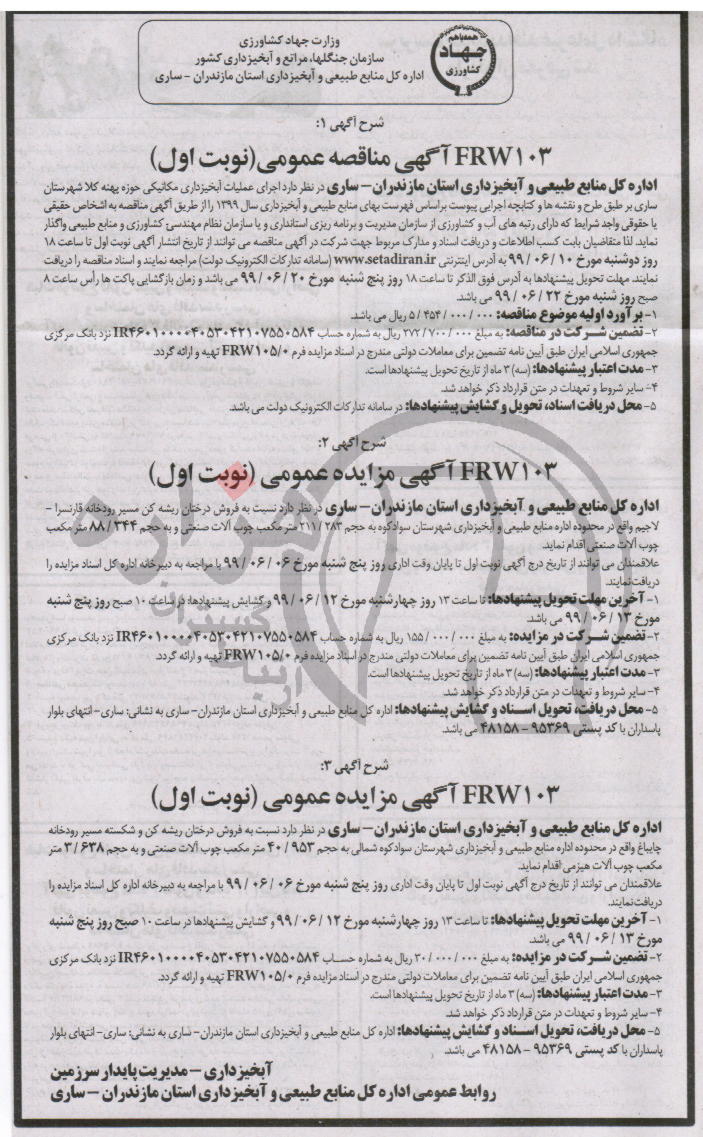 همه با هم
جهاد
کشاورزی
وزارت جهاد کشاورزی
سازمان جنگلها، مراتع و آبخیزداری کشور
اداره کل منابع طبیعی و آبخیزداری استان مازندران – ساری
شرح آگهی ۱:
FRW۱۰۳ آگهی مناقصه عمومی (نوبت اول)
اداره کل منابع طبیعی و آبخیزداری استان مازندران – ساری در نظر دارد اجرای عملیات آبخیزداری مکانیکی حوزه پهنه کلا شهرستان
ساری بر طبق طرح و نقشه ها و کتابچه اجرایی پیوست براساس فهرست بهای منابع طبیعی و آبخیزداری سال ۱۳۹۹ را از طریق آگهی مناقصه به اشخاص حقیقی
یا حقوقی واجد شرایط که دارای رتبه های آب و کشاورزی از سازمان مدیریت و برنامه ریزی استانداری و یا سازمان نظام مهندسی کشاورزی و منابع طبیعی واگذار
نماید. لذا متقاضیان بابت کسب اطلاعات و دریافت اسناد و مدارک مربوط جهت شرکت در آگهی مناقصه می توانند از تاریخ انتشار آگهی نوبت اول تا ساعت ۱۸
روز دوشنبه مورخ ۱۰ / ۰۶ / ۹۹ به آدرس اینترنتی www.setadiran.ir (سامانه تدارکات الکترونیک دولت) مراجعه نمایند و اسناد مناقصه را دریافت
نمایند. مهلت تحویل پیشنهادها به آدرس فوق الذکر تا ساعت ۱۸ روز پنج شنبه مورخ ۲۰ / ۰۶ / ۹۹ می باشد و زمان بازگشایی پاکت ها رأس ساعت ۸
صبح روز شنبه مورخ ۲۲ / ۰۶ / ۹۹ می باشد.
۱- برآورد اولیه موضوع مناقصه: ۰۰۰ / ۰۰۰ / ۴۵۴ / ۵ ریال می باشد.
۲- تضمین شرکت در مناقصه: به مبلغ ۰۰۰ / ۷۰۰ / ۲۷۲ ریال به شماره حساب IR۴۶۰۱۰۰۰۰۴۰۵۳۰۴۲۱۰۷۵۵۰۵۸۴ نزد بانک مرکزی
جمهوری اسلامی ایران طبق آیین نامه تضمین برای معاملات دولتی مندرج در اسناد مزایده فرم FRW۱۰۵/۰ تهیه و ارائه گردد.
۳- مدت اعتبار پیشنهادها: (سه) ۳ ماه از تاریخ تحویل پیشنهادها است.
۴- سایر شروط و تعهدات در متن قرارداد ذکر خواهد شد.
۵- محل دریافت اسناد، تحویل و گشایش پیشنهادها: در سامانه تدارکات الکترونیک دولت می باشد.
شرح آگهی ۲:
FRW۱۰۳ آگهی مزایده عمومی (نوبت اول)
اداره کل منابع طبیعی و آبخیزداری استان مازندران – ساری در نظر دارد نسبت به فروش درختان ریشه کن مسیر رودخانه قارنسرا –
لاجیم واقع در محدوده اداره منابع طبیعی و آبخیزداری شهرستان سوادکوه به حجم ۲۸۳ / ۲۱۱ متر مکعب چوب آلات صنعتی و به حجم ۳۴۴ / ۸۸ متر مکعب
چوب آلات صنعتی اقدام نماید.
علاقمندان می توانند از تاریخ درج آگهی نوبت اول تا پایان وقت اداری روز پنج شنبه مورخ ۰۶ / ۰۶ / ۹۹ با مراجعه به دبیرخانه اداره کل اسناد مزایده را
دریافت نمایند.
۱- آخرین مهلت تحویل پیشنهادها: تا ساعت ۱۳ روز چهارشنبه مورخ ۱۲ / ۰۶ / ۹۹ و گشایش پیشنهادها: در ساعت ۱۰ صبح روز پنج شنبه
مورخ ۱۳ / ۰۶ / ۹۹ می باشد.
۲- تضمین شرکت در مزایده: به مبلغ ۰۰۰ / ۰۰۰ / ۱۵۵ ریال به شماره حساب IR۴۶۰۱۰۰۰۰۴۰۵۳۰۴۲۱۰۷۵۵۰۵۸۴ نزد بانک مرکزی
جمهوری اسلامی ایران طبق آیین نامه تضمین برای معاملات دولتی مندرج در اسناد مزایده فرم FRW۱۰۵/۰ تهیه و ارائه گردد.
۳- مدت اعتبار پیشنهادها: (سه) ۳ ماه از تاریخ تحویل پیشنهادها است.
۴- سایر شروط و تعهدات در متن قرارداد ذکر خواهد شد.
۵- محل دریافت، تحویل اسناد و گشایش پیشنهادها: اداره کل منابع طبیعی و آبخیزداری استان مازندران- ساری به نشانی: ساری- انتهای بلوار
پاسداران با کد پستی ۹۵۳۶۹ – ۴۸۱۵۸ می باشد.
شرح آگهی ۳:
FRW۱۰۳ آگهی مزایده عمومی (نوبت اول)
اداره کل منابع طبیعی و آبخیزداری استان مازندران – ساری در نظر دارد نسبت به فروش درختان ریشه کن و شکسته مسیر رودخانه
چایباغ واقع در محدوده اداره منابع طبیعی و آبخیزداری شهرستان سوادکوه شمالی به حجم ۹۵۳ / ۴۰ متر مکعب چوب آلات صنعتی و به حجم ۶۳۸ / ۳ متر
مکعب چوب آلات هیزمی اقدام نماید.
علاقمندان می توانند از تاریخ درج آگهی نوبت اول تا پایان وقت اداری روز پنج شنبه مورخ ۰۶ / ۰۶ / ۹۹ با مراجعه به دبیرخانه اداره کل اسناد مزایده را
دریافت نمایند.
۱- آخرین مهلت تحویل پیشنهادها: تا ساعت ۱۳ روز چهارشنبه مورخ ۱۲ / ۰۶ / ۹۹ و گشایش پیشنهادها در ساعت ۱۰ صبح روز پنج شنبه
مورخ ۱۳ / ۰۶ / ۹۹ می باشد.
۲- تضمین شرکت در مزایده: به مبلغ ۰۰۰ / ۰۰۰ / ۳۰ ریال به شماره حساب IR۴۶۰۱۰۰۰۰۴۰۵۳۰۴۲۱۰۷۵۵۰۵۸۴ نزد بانک مرکزی
جمهوری اسلامی ایران طبق آیین نامه تضمین برای معاملات دولتی مندرج در اسناد مزایده فرم FRW۱۰۵/۰ تهیه و ارائه گردد.
۳- مدت اعتبار پیشنهادها: (سه) ۳ ماه از تاریخ تحویل پیشنهادها است.
۴- سایر شروط و تعهدات در متن قرارداد ذکر خواهد شد.
۵- محل دریافت، تحویل اسناد و گشایش پیشنهادها: اداره کل منابع طبیعی و آبخیزداری استان مازندران- ساری به نشانی: ساری- انتهای بلوار
پاسداران با کد پستی ۹۵۳۶۹ – ۴۸۱۵۸ می باشد.
آبخیزداری – مدیریت پایدار سرزمین
روابط عمومی اداره کل منابع طبیعی و آبخیزداری استان مازندران – ساری